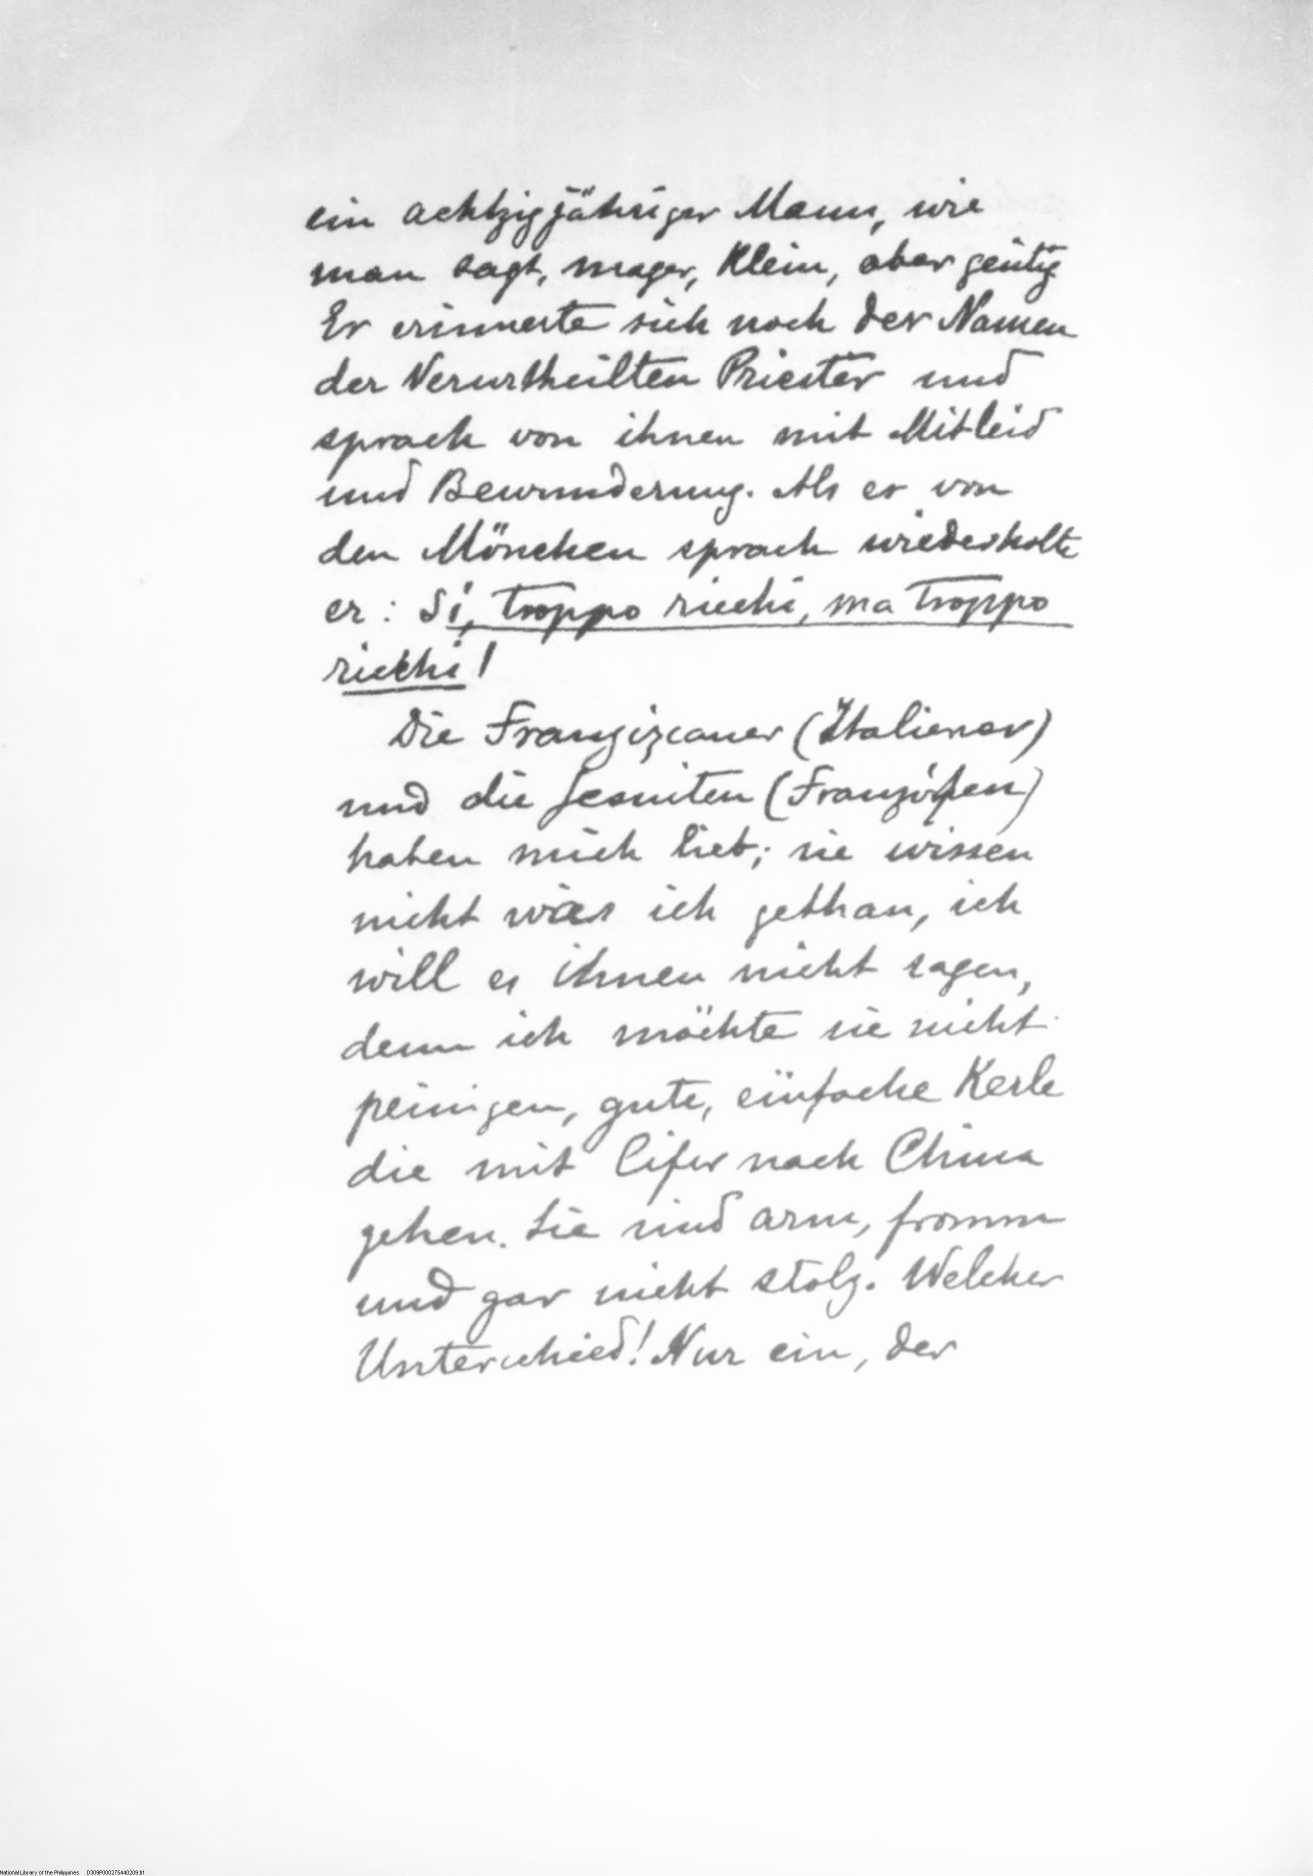 ein achtzigjähriger Mann, wie
man sagt, mager, klein, aber geütig
Er erinnerte sich noch der Namen
der Verurtheilten Priester und
sprach von ihnen mit Mitleid
und Bewunderung. Als er von
den Mönchen sprach wiederholte
er: Si, troppo ricchi, ma troppo
ricchi!
Die Franziscaner (Italiener)
und die Jesuiten (Französen)
haben mich lieb; sie wissen
nicht was ich gethan, ich
will es ihnen nicht sagen,
denn ich möchte sie nicht
peinigen, gute, einfache Kerle
die mit Eifer nach China
gehen. Sie sind arm, fromm
und gar nicht stolz. Welcher
Unterschied! Nur ein, der
National Library of the Philippines